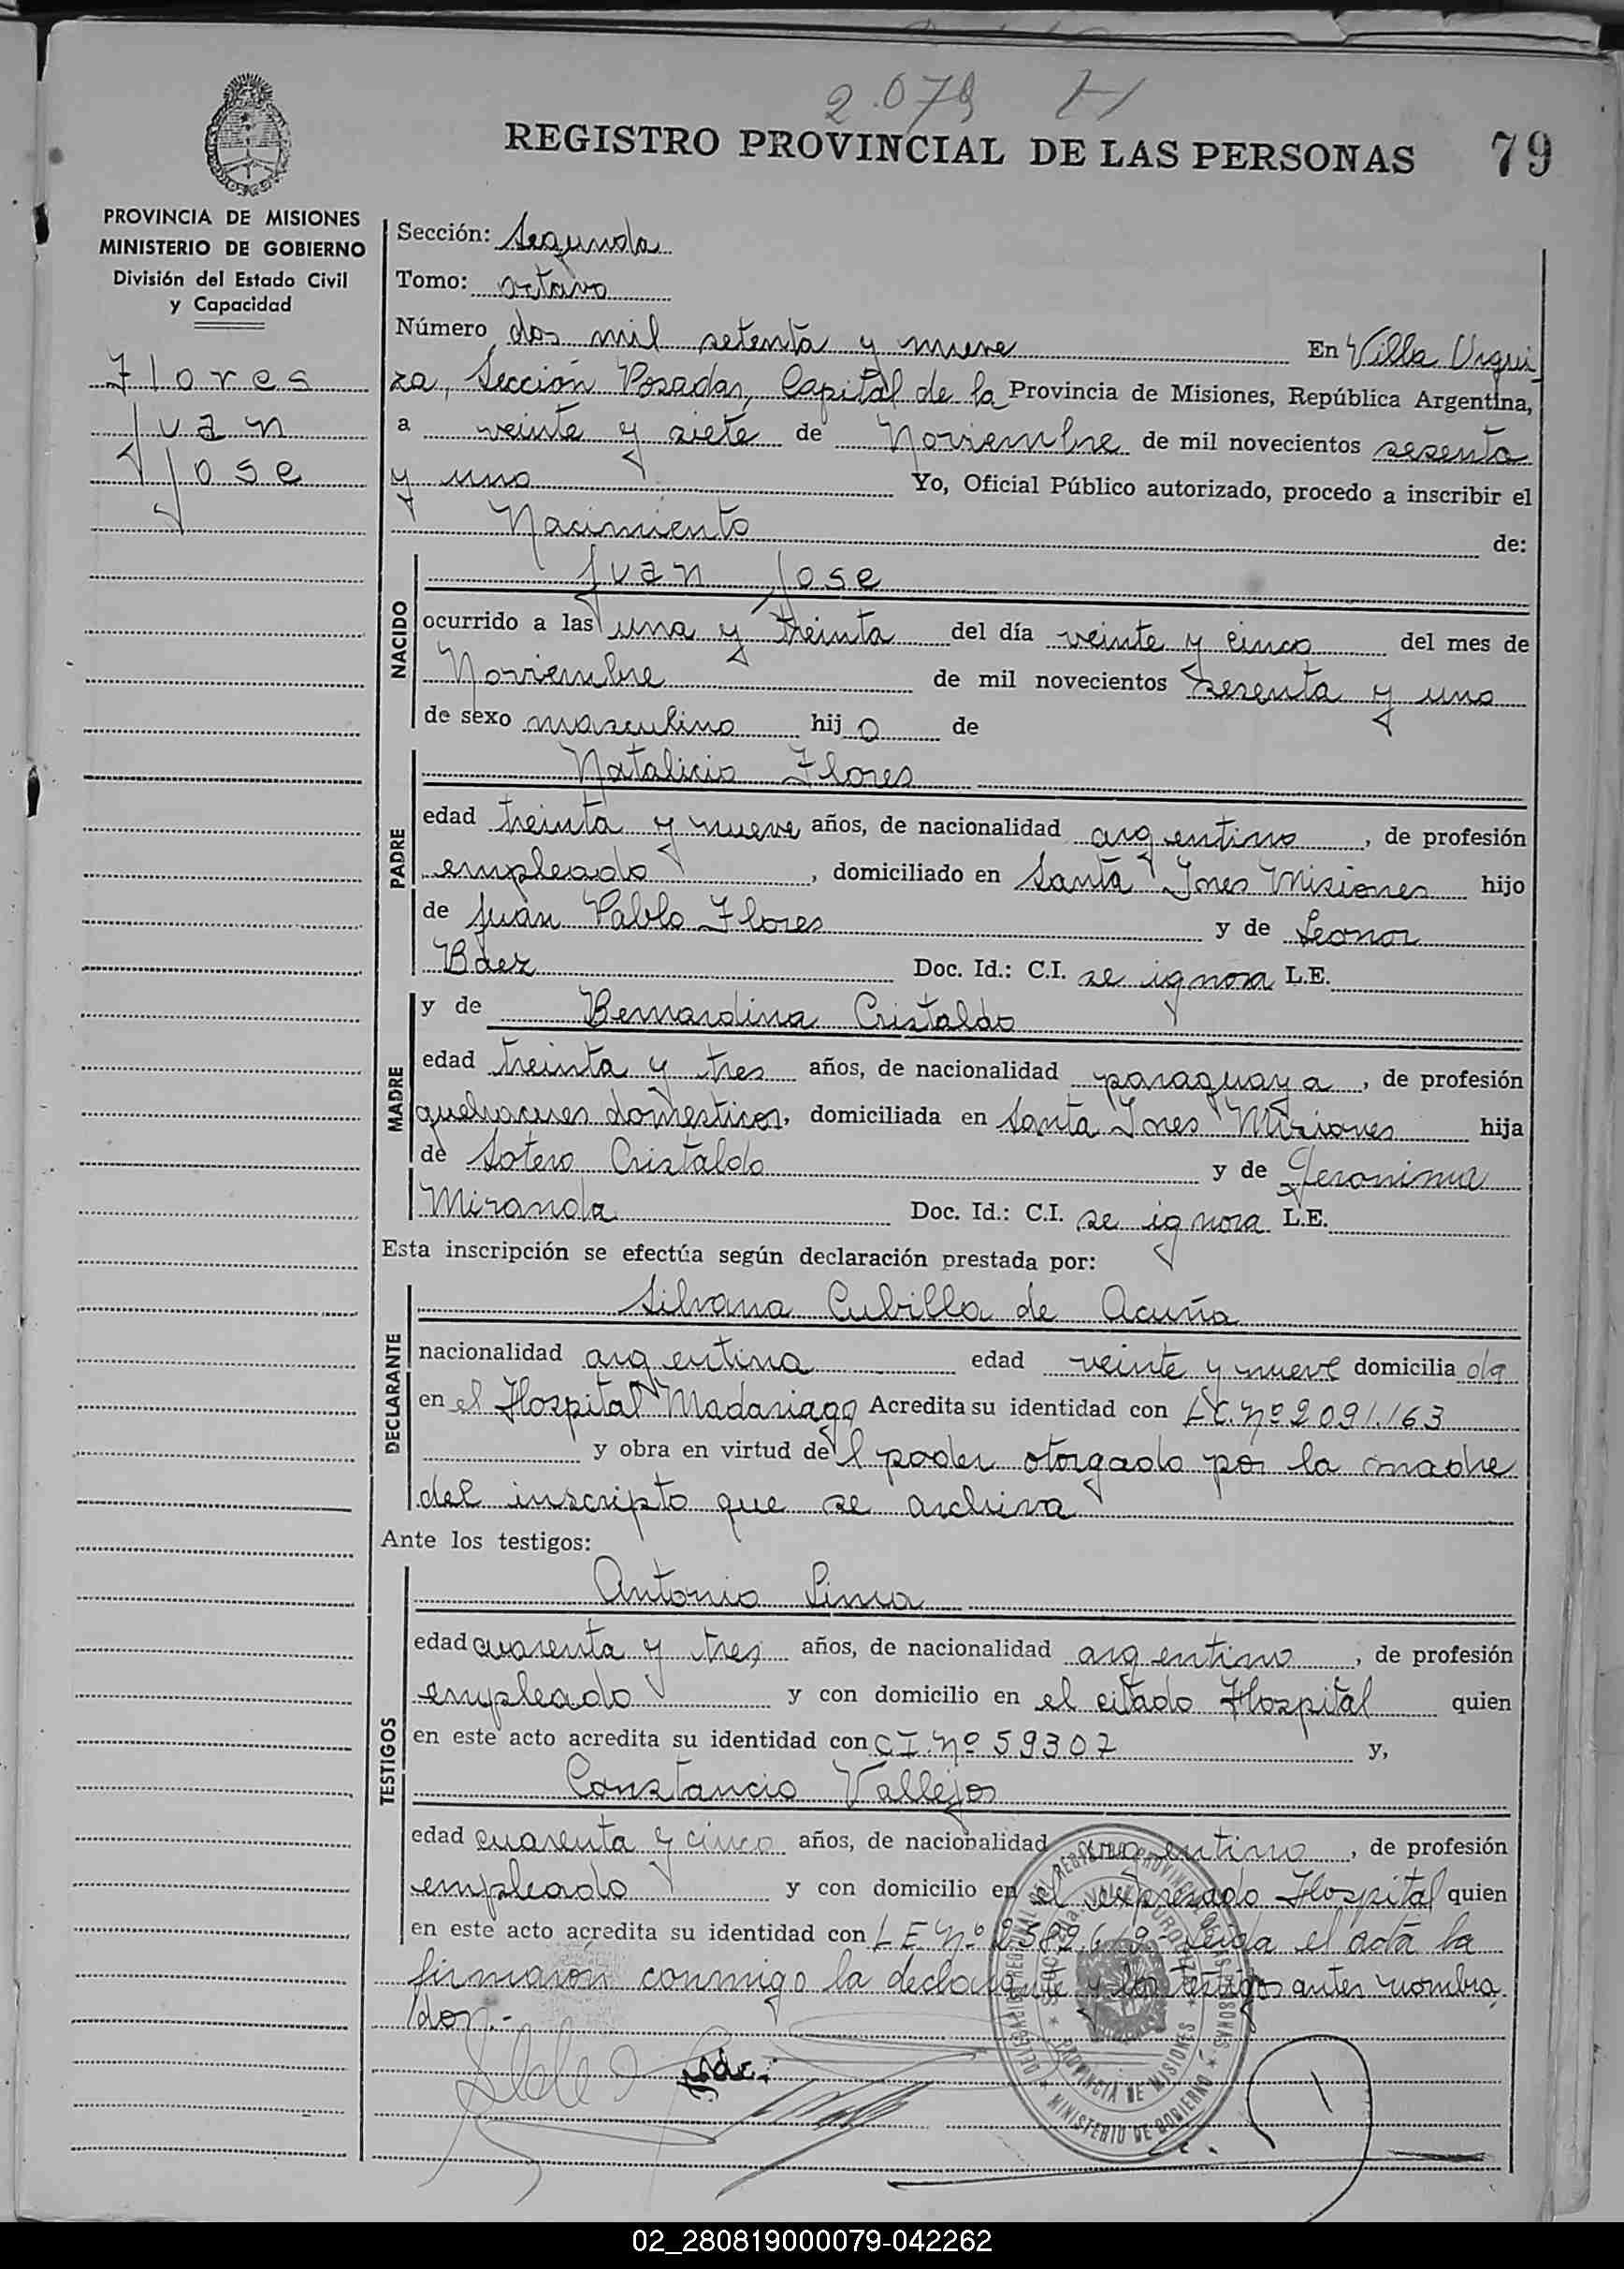 2.079
REGISTRO PROVINCIAL DE LAS PERSONAS 79
PROVINCIA DE MISIONES
MINISTERIO DE GOBIERNO
División del Estado Civil
y Capacidad
Flores
Juan
Jose
Sección: Segunda
Tomo: octavo
Número dos mil setenta y nueve En Villa Urqui
za, Sección Posadas, Capital de la Provincia de Misiones, República Argentina,
a veinte y siete de Noviembre de mil novecientos sesenta
y uno Yo, Oficial Público autorizado, procedo a inscribir el
Nacimiento de:
NACIDO
Juan Jose
ocurrido a las una y treinta del día veinte y cinco del mes de
Noviembre de mil novecientos sesenta y uno
de sexo masculino hijo de
PADRE
Natalicio Flores
edad treinta y nueve años, de nacionalidad argentino, de profesión
empleado, domiciliado en Santa Ines Misiones hijo
de Juan Pablo Flores y de Leonor
Báez Doc. Id.: C.I. se ignora L.E.
MADRE
y de Bernardina Cristaldo
edad treinta y tres años, de nacionalidad paraguaya, de profesión
quehaceres domesticos, domiciliada en Santa Ines Misiones hija
de Sotero Cristaldo y de Jeronima
Miranda Doc. Id.: C.I. se ignora L.E.
Esta inscripción se efectúa según declaración prestada por:
DECLARANTE
Silvana Cubilla de Acuña
nacionalidad argentina edad veinte y nueve domiciliada
en el Hospital Madariaga Acredita su identidad con L.C. Nº 2091.163
y obra en virtud del poder otorgado por la madre
del inscripto que se archiva
Ante los testigos:
TESTIGOS
Antonio Lima
edad cuarenta y tres años, de nacionalidad argentino, de profesión
empleado y con domicilio en el citado Hospital quien
en este acto acredita su identidad con C.I. Nº 59307 y,
Constancio Vallejos
edad cuarenta y cinco años, de nacionalidad argentino, de profesión
empleado y con domicilio en el expresado Hospital quien
en este acto acredita su identidad con L.E. Nº Leida el acta la
firmaron conmigo la declarante y los testigos antes nombra
dos.-
PROVINCIA DE MISIONES
MINISTERIO DE GOBIERNO
02_280819000079-042262